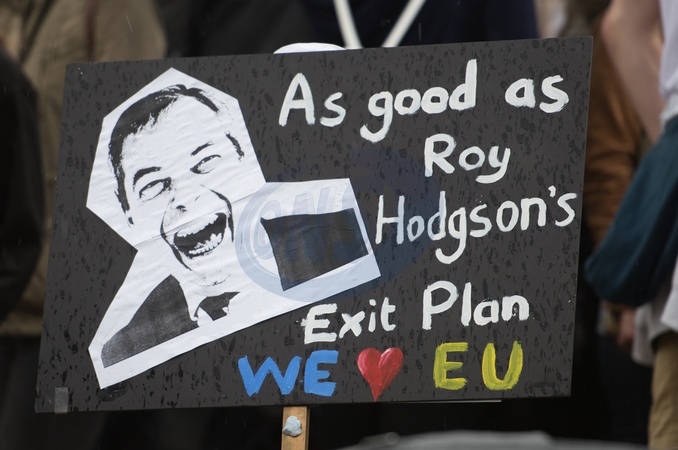 As good as
Roy
Hodgson's
Exit Plan
WE ❤ EU